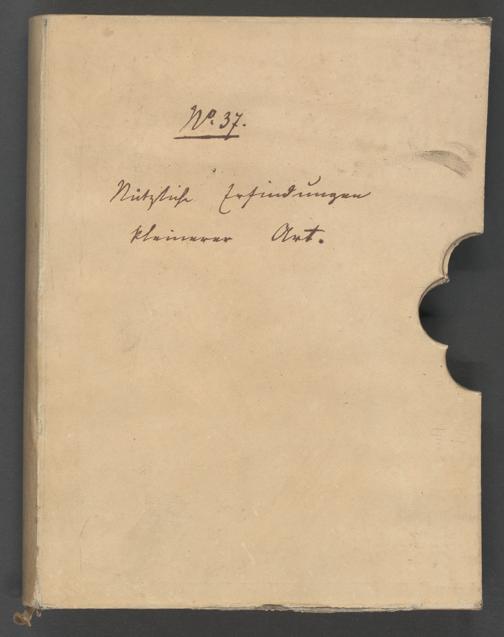 No. 37.
Nützliche Erfindungen
kleinerer Art.